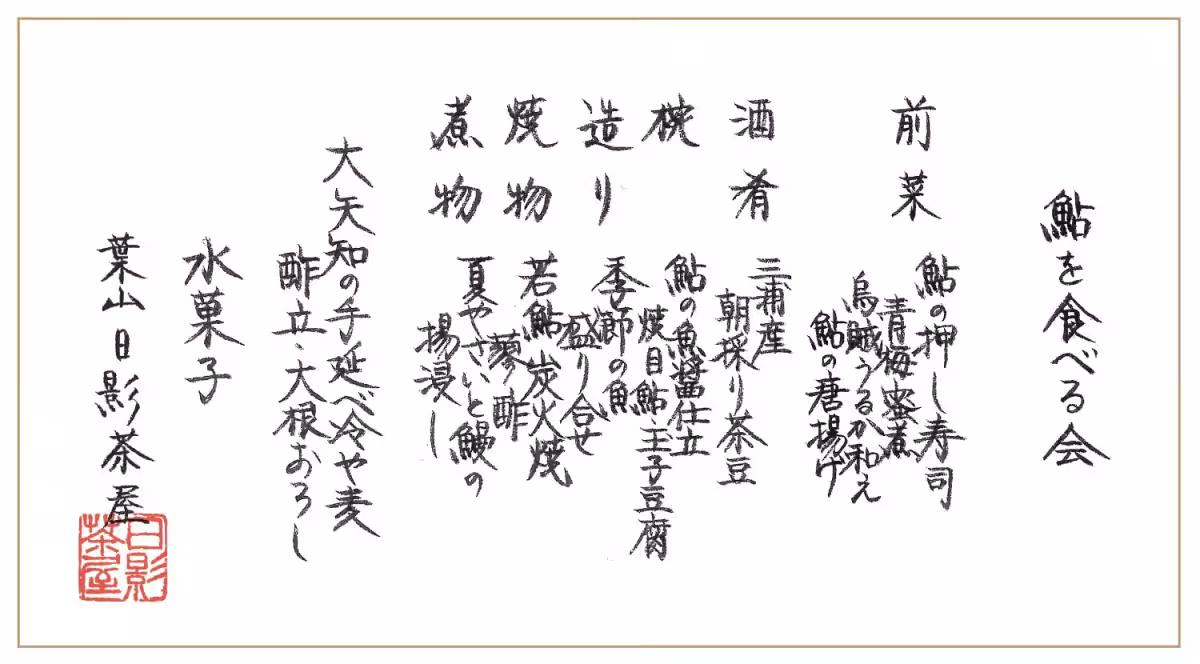 鮎を食べる会
前菜
鮎の押し寿司
青梅蜜煮
烏賊うるか和え
鮎の唐揚げ
酒肴
三浦産
朝採り茶豆
椀
鮎の魚醤仕立
焼目鮎・玉子豆腐
造り
季節の魚
盛り合せ
焼物
若鮎炭火焼
蓼酢
煮物
夏やさいと鰻の
揚浸し
大矢知の手延べ冷や麦
酢立・大根おろし
水菓子
葉山日影茶屋
日影
茶屋